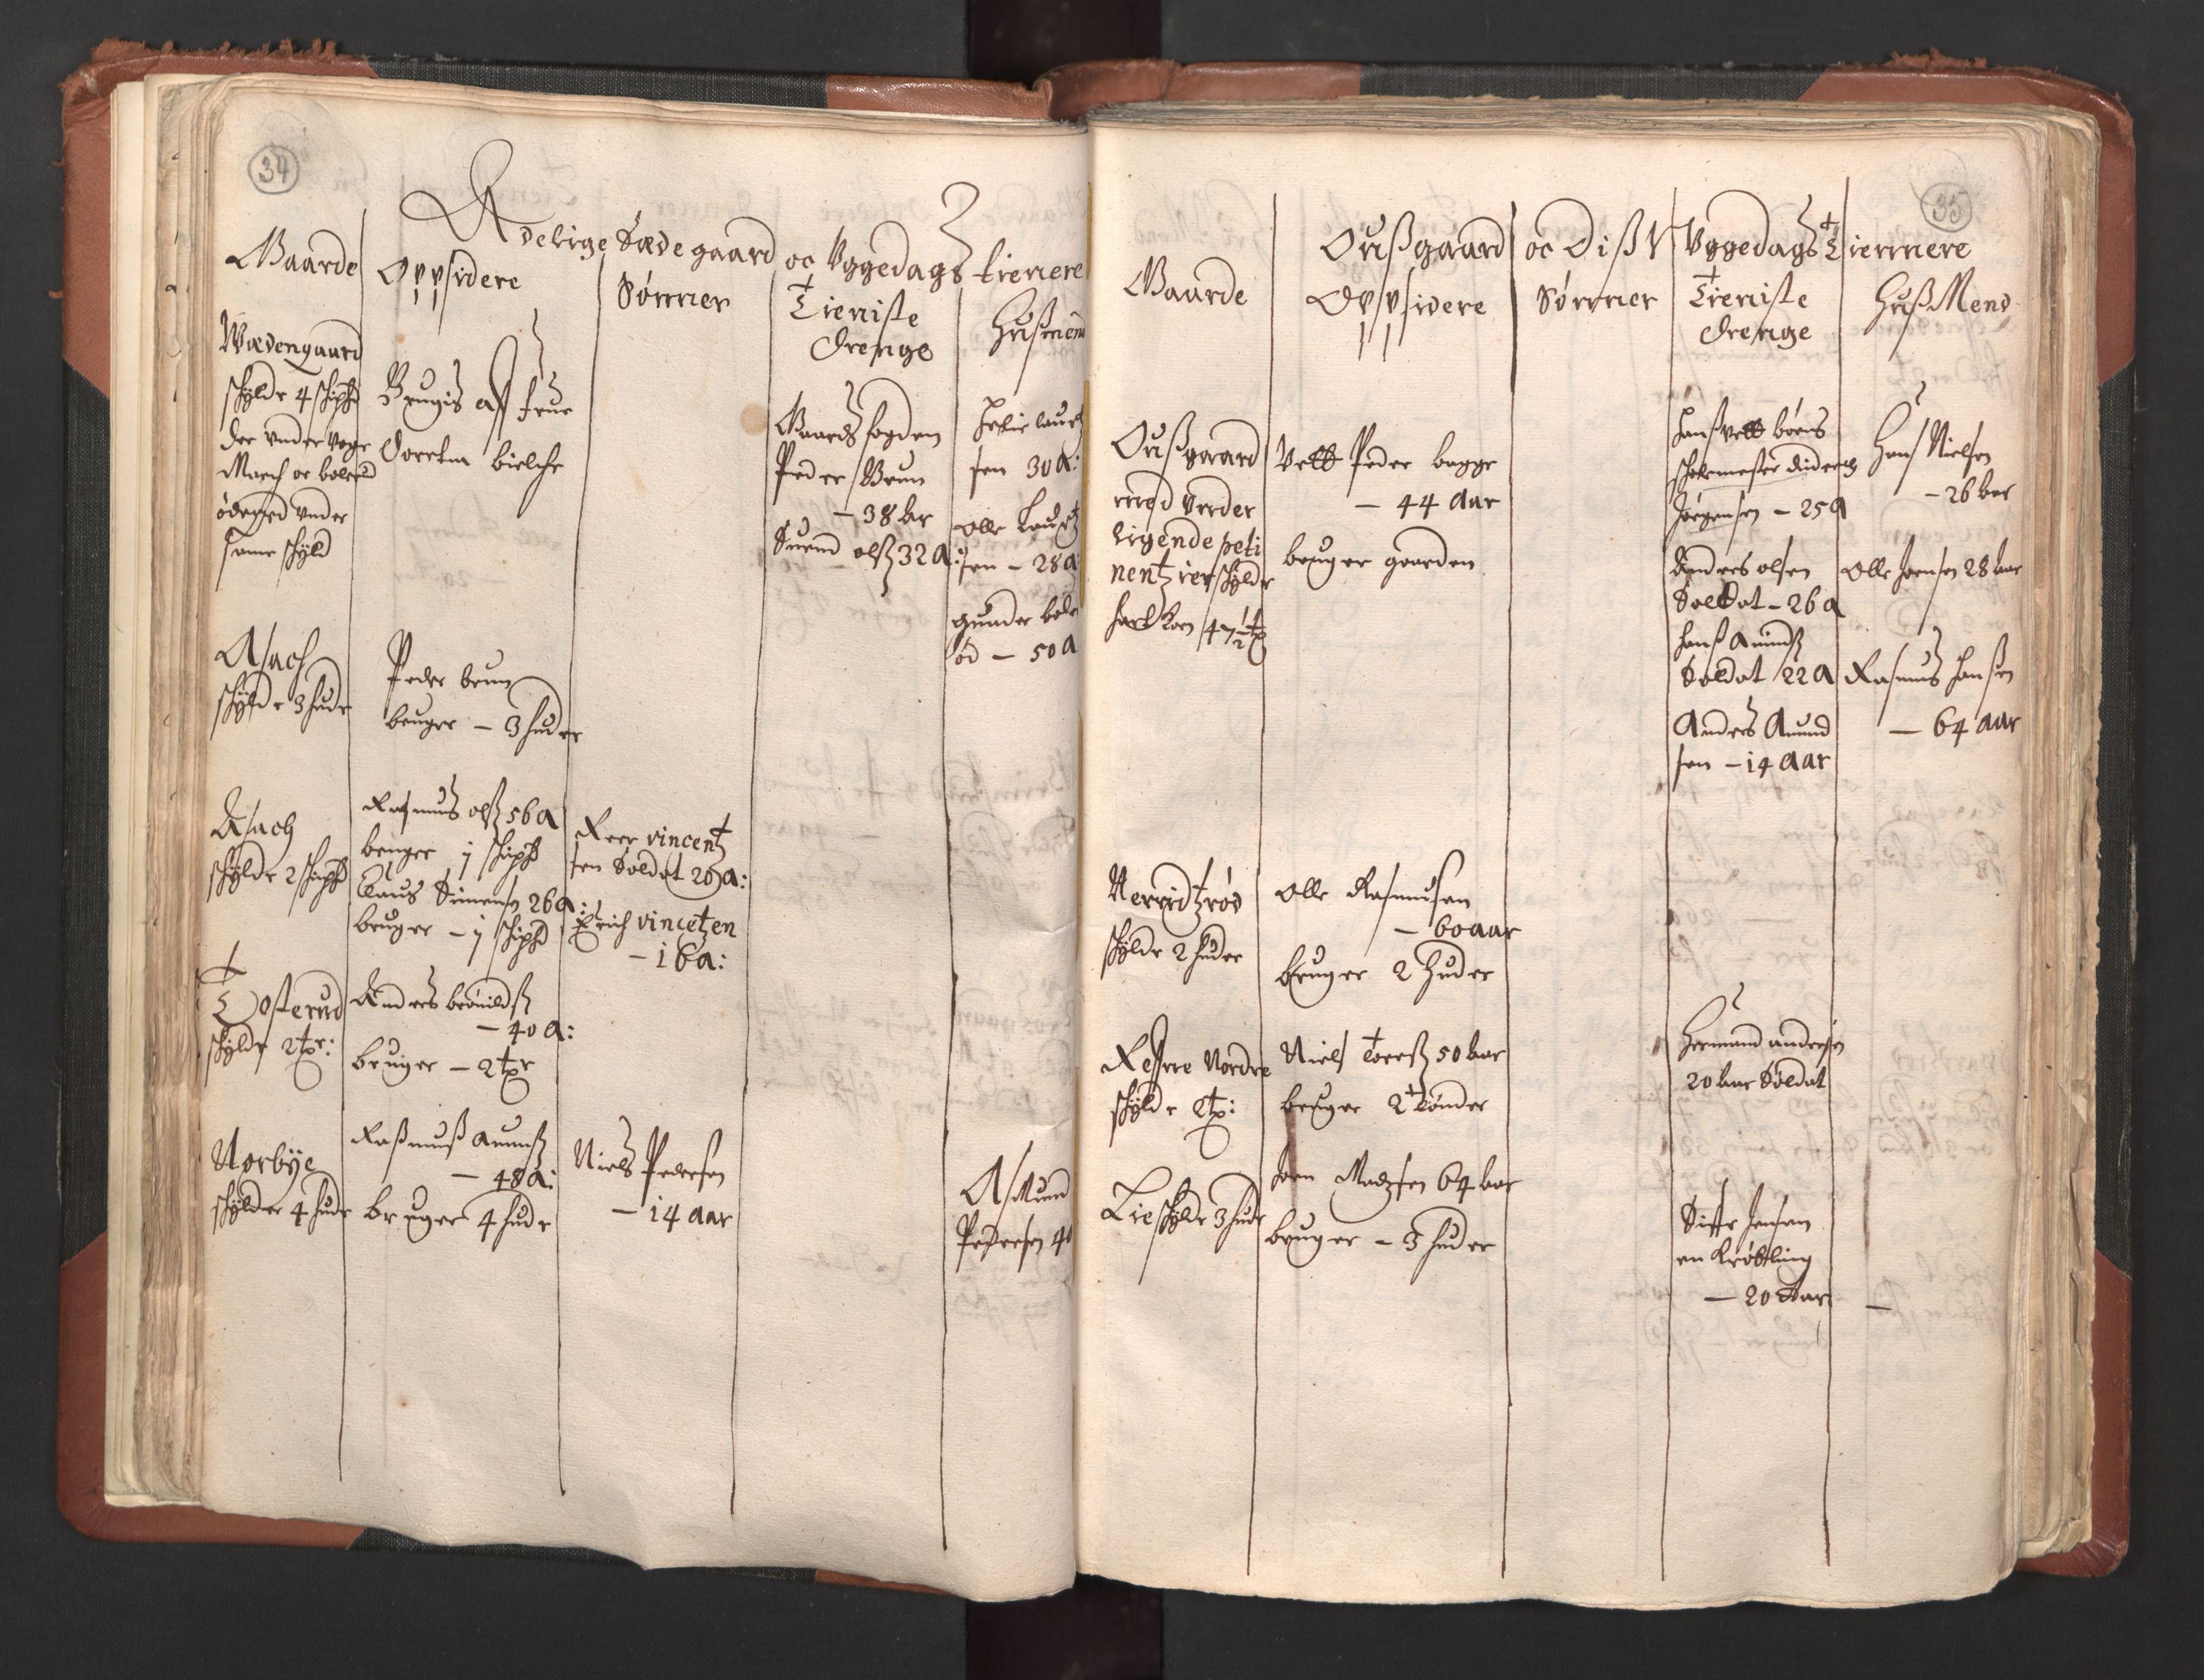 34
Adelige Sædegaard oc Vggedags tienere
Gaarde
Opsidere
Sønner
Tieniste
drenge
Hußmend
Wædengaard
schylder 4 schipd
Brugis aff frue
Doretea bielche
der under
March oc
ødegrd under
same schyld
Gaardsfogden
Peder Brun
- 38 aar
Suend olß 32 a:
Helie laurs
sen 30 a:
Olle Laurs
sen - 28 a
gunder bøle
ød - 50 a
Asach
schylder 3 huder
Peder brun
bruger - 3 huder
Asach
schylder 2 schipd
Rasmus olß 56 a
bruger j schipd
Claus Simensen 26 a:
bruger - j schipd
Reer vincent
sen Soldat 20 a:
Erich vincetzen
- 16 a:
Tosterud
schylder 2 tpr:
Anders brønildß
- 40 a:
bruger - 2 tpr
Norbye
schylder 4 huder
Raßmuß amundß
- 48 a:
bruger 4 huder
Niels Pedersen
- 14 aar
Asmund
Pedersen 40
35
Oußgaard oc Dißs Vggedags Tiennere
Gaarde
Opsidere
Sønner
Tieniste
drenge
Huß Mend
Oußgaard
med under
ligende peti
nentzier schylder
hart korn 47½ tp
Vell Peder bagge
- 44 aar
bruger gaarden
Hanß vell børns
scholemester diderich
Jørgensen - 25 a
Anders olsen
Soldat - 26 a
Hanß Amundß
Soldat 22 a
Anders Amund
sen - 14 aar
Hans Nielsen
- 26 aar
Olle Joensen 28 aar
Rasmus Hansen
- 64 aar
Nerridtzrød
schylder 2 huder
Olle Rasmusen
- 60 aar
bruger 2 huder
Resne Nordre
schylder 2 tp:
Niels Toerß 50 aar
bruger 2 tønder
Hermand andersen
20 aar Soldat
Lie schylder 3 huder
Joen Madzsen 64 aar
bruger - 3 huder
Jensen
en Krøbling
- 20 aar -